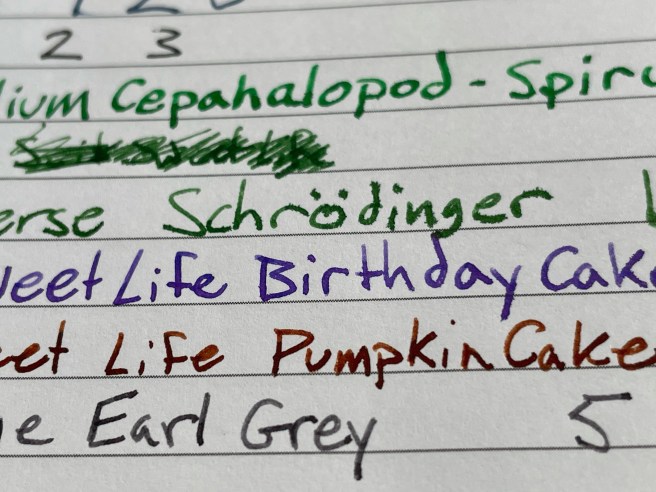 2 3
ium Cepahalopod - Spiru
erse Schrödinger
eet Life Birthday Cake
et Life Pumpkin Cake
e Earl Grey 5